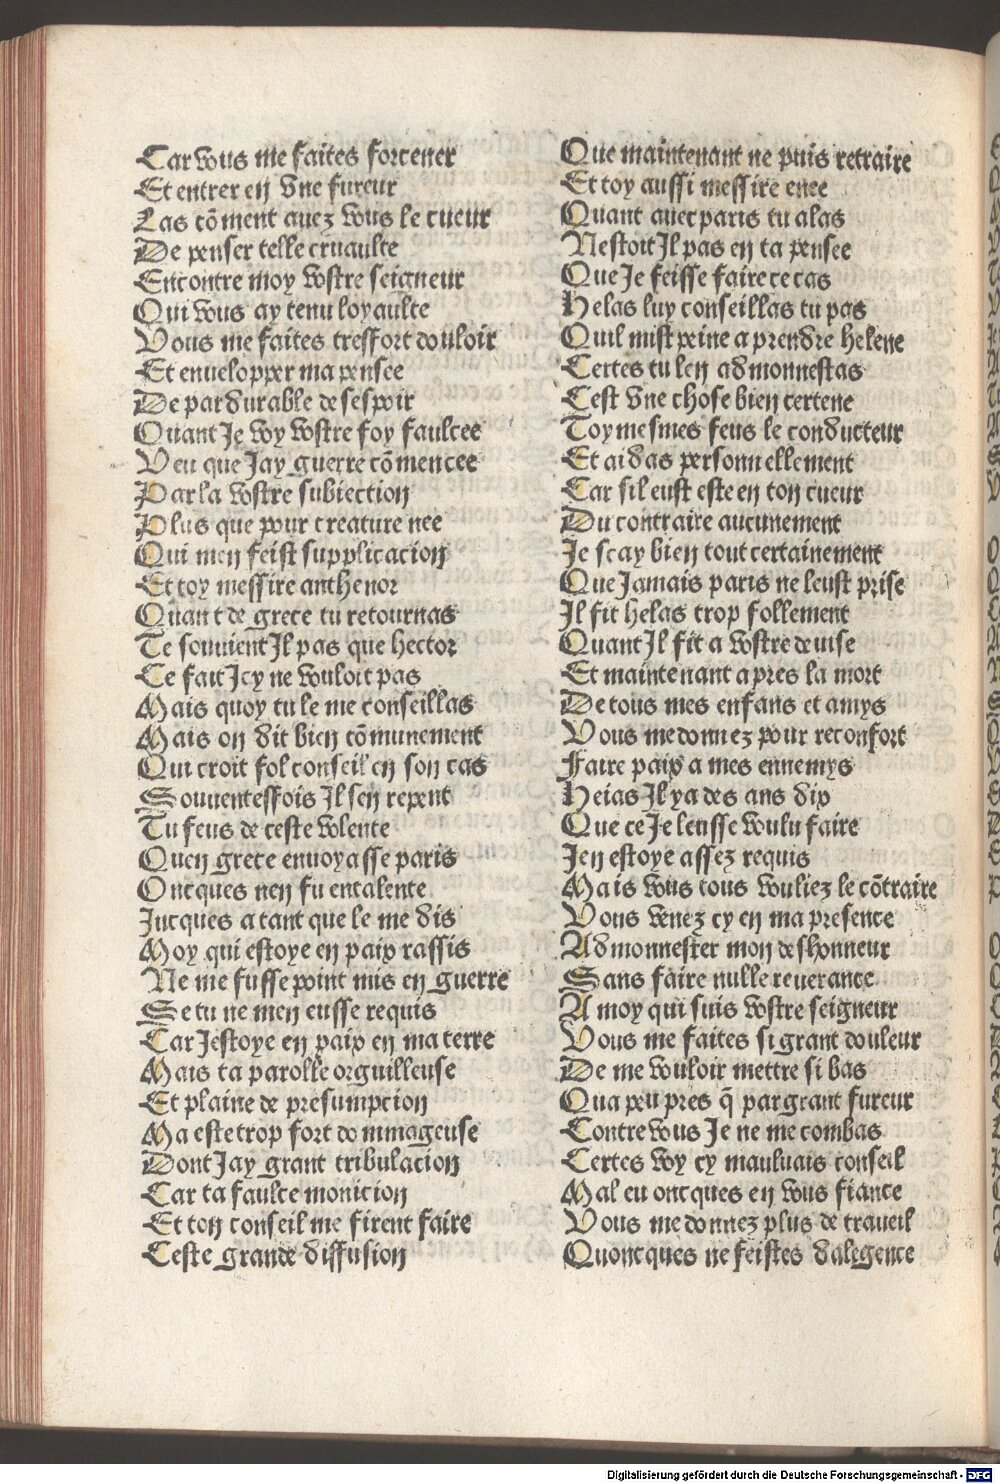 Car vous me faites forcener
Et entrer en vne fureur
Las cōment auez vous le cueur
De penser telle cruaulte
Encontre moy vostre seigneur
Qui vous ay tenu loyaulte
Vous me faites tresfort douloir
Et enuelopper ma pensee
De pardurable desespoir
Quant Je voy vostre foy faulcee
Veu que Jay guerre cōmencee
Par la vostre subiection
Plus que pour creature nee
Qui men feist supplicacion
Et toy messire anthenor
Quant de grece tu retournas
Te souuient Jl pas que hector
Ce fait Jcy ne vouloit pas
Mais quoy tu le me conseillas
Mais on dit bien cōmunement
Qui croit fol conseil en son cas
Souuenteffois Jl sen repent
Tu feus de ceste volente
Quen grece enuoyasse paris
Oncques nen fu entalente
Jucques a tant que le me dis
Moy qui estoye en paix rassis
Ne me fusse point mis en guerre
Se tu ne men eusse requis
Car Jestoye en paix en ma terre
Mais ta parolle orguilleuse
Et plaine de presumpcion
Ma este trop fort dommageuse
Dont Jay grant tribulacion
Car ta faulce monicion
Et ton conseil me firent faire
Ceste grande diffusion
Que maintenant ne puis retraire
Et toy aussi messire enee
Quant auec paris tu alas
Nestoit Jl pas en ta pensee
Que Je feisse faire ce cas
Helas luy conseillas tu pas
Quil mist peine a prendre helene
Certes tu len admonnestas
Cest vne chose bien certene
Toy mesmes feus le conducteur
Et aidas personnellement
Car sil eust este en ton cueur
Du contraire aucunement
Je scay bien tout certainement
Que Jamais paris ne leust prise
Jl fit helas trop follement
Quant Jl fit a vostre deuise
Et maintenant apres la mort
De tous mes enfans et amys
Vous me donnez pour reconfort
Faire paix a mes ennemys
Helas Jl ya des ans dix
Que ce Je leusse voulu faire
Jen estoye assez requis
Mais vous tous vouliez le cōtraire
Vous venez cy en ma presence
Admonnester mon deshonneur
Sans faire nulle reuerance
A moy qui suis vostre seigneur
Vous me faites si grant douleur
De me vouloir mettre si bas
Qua peu pres q̄ par grant fureur
Contre vous Je ne me combas
Certes voy cy mauluais conseil
Mal eu oncques en vous fiance
Vous me donnez plus de traueil
Quoncques ne feistes dalegence
Digitalisierung gefördert durch die Deutsche Forschungsgemeinschaft - DFG